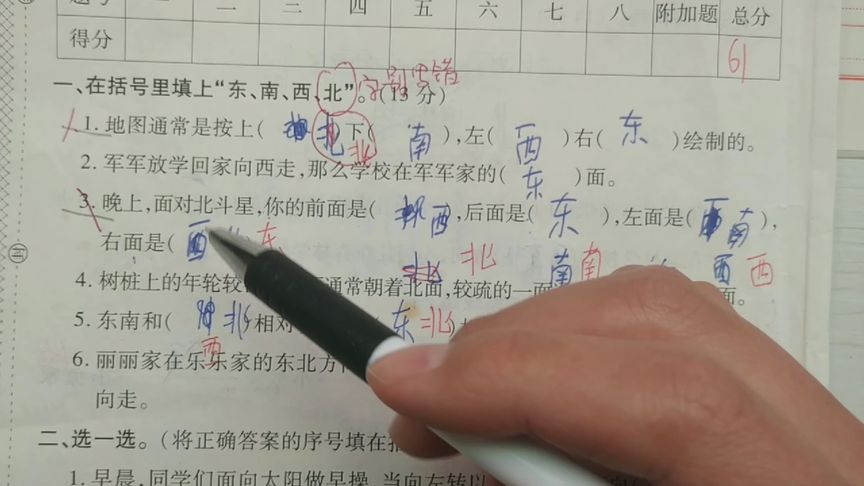 一 二 三 四 五 六 七 八 附加题 总分
得分 61
一、在括号里填上“东、南、西、北”。(13分) 字别写错
1. 地图通常是按上( 北 )下( 南 ),左( 西 )右( 东 )绘制的。
北
2. 军军放学回家向西走,那么学校在军军家的( 东 )面。
3. 晚上,面对北斗星,你的前面是( 西 ),后面是( 东 ),左面是( 南 ),
右面是( 西 东
北 北 南 南 西 西
4. 树桩上的年轮较 通常朝着北面,较疏的一面 面。
5. 东南和( 北 )相对 东 北
西
6. 丽丽家在乐乐家的东北方
向走。
二、选一选。(将正确答案的序号填在括
1. 早晨,同学们面向太阳做早操,当向左转以